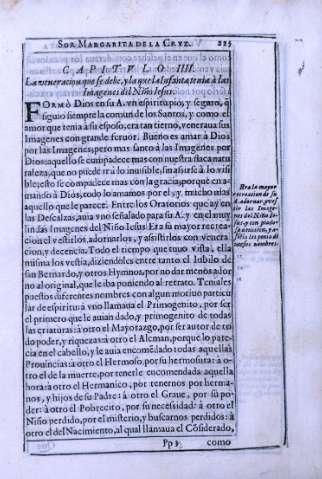 SOR MARGARITA DE LA CRVZ. 225
CAPITVLO IIII.
La veneracion que se debe, y la que la Infanta tenia à las
Imagenes del Niño Iesus.
FORMÒ Dios en su A. vn espiritu pio, y seguro, q̃
siguio siempre la comun de los Santos, y como el
amor que tenia a su esposo, era tan tierno, veneraua sus
Imagenes con grande feruor. Bueno es amar à Dios
por las Imagenes; pero mas santo à las Imagenes por
Dios: aquello se compadece mas con nuestra flaca natu
raleza, que no puede ir à lo inuisible, sin asirse à lo vi
sible; esto se compadece mas con la gracia: porque en a-
mando à Dios, todo lo amamos por el, y mucho mas
aquello que le parece. Entre los Oratorios que ay en
las Descalzas, auia vno señalado para su A. y en el muy
lindas Imagenes del Niño Iesus: Era su mayor recrea-
cion el vestirlos, adornarlos, y asistirlos con venera
cion, y decencia. Todo el tiempo que tuuo vista, ella
misma los vestia, diziendoles entre tanto el Iubilo de
su Bernardo, y otros Hymnos, por no dar menos ador
no al original, que le iba poniendo al retrato. Tenia les
puestos diferentes nombres con algun motiuo particu
lar de espiritu: à vno llamaua el Primogenito, por ser
el primero que le auian dado, y primogenito de todas
las criaturas: à otro el Mayorazgo, por ser autor de to
do poder, y riquezas: à otro el Aleman, porque lo pate
cia en el cabello, y le auia encomẽdado todas aquellas
Prouincias: à otro el Hermoso, por su hermosura: à o-
tro el de la muerte, por tenerle encomendada aquella
hora: à otro el Hermanico, por tenernos por herma-
nos, y hijos de su Padre: à otro el Graue, por su po-
der: à otro el Pobrecito, por su necessidad: à otro el
Niño perdido, por el misterio, y buscarnos perdidos: à
otro el del Nacimiento, al qual llamaua el Cõsiderado,
Pp 3 como
Era la mayor
recreacion de su
A. adornar, y vest
tir las Image
nes del Niño Ie-
sus, y con piado